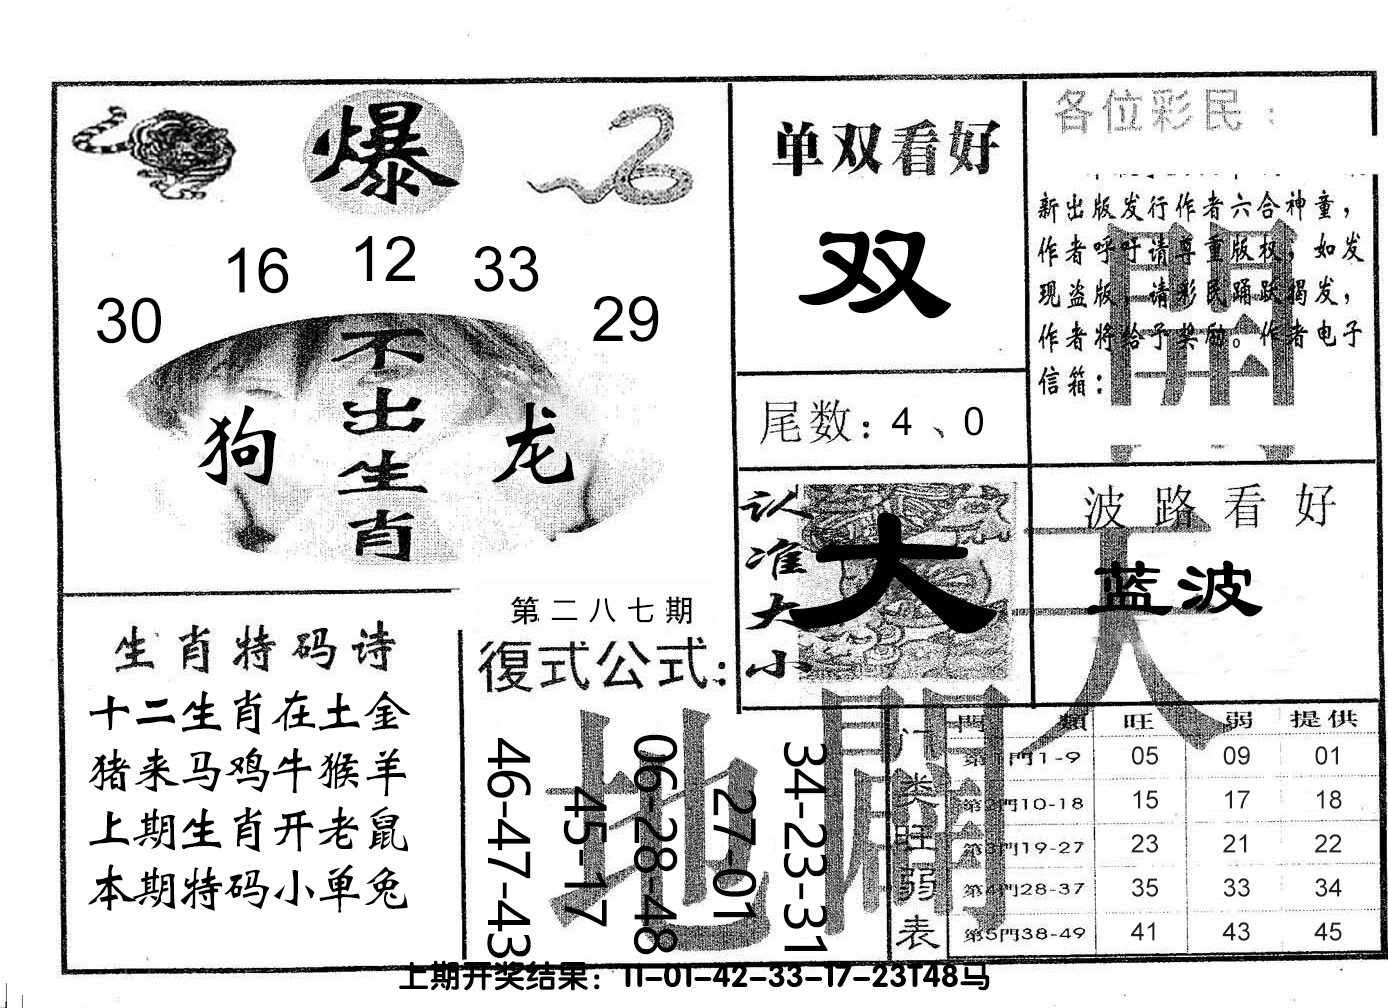 爆
30 16 12 33 29
不出生肖
狗 龙
单双看好
双
尾数：4、0
各位彩民：
新出版发行作者六合神童，
作者呼吁请尊重版权，如发
现盗版，请彩民踊跃揭发，
作者将给予奖励。作者电子
信箱：
開
认准大小
大
波路看好
蓝波
天
生肖特码诗
十二生肖在土金
猪来马鸡牛猴羊
上期生肖开老鼠
本期特码小单兔
第二八七期
復式公式：
46-47-43
45-17
06-28-48
27-01
34-23-31
地
门类旺弱表
門類 旺 弱 提供
第1門1-9 05 09 01
第2門10-18 15 17 18
第3門19-27 23 21 22
第4門28-37 35 33 34
第5門38-49 41 43 45
上期开奖结果：11-01-42-33-17-23T48马